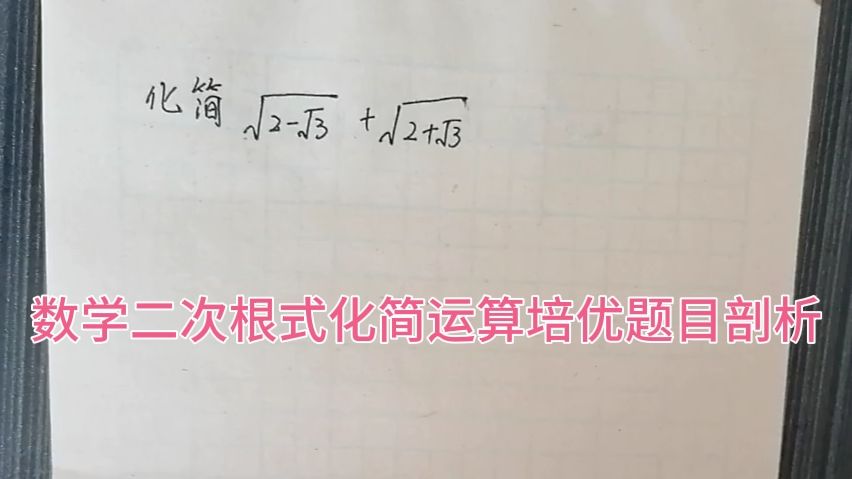 化简 √(2-√3) + √(2+√3)
数学二次根式化简运算培优题目剖析